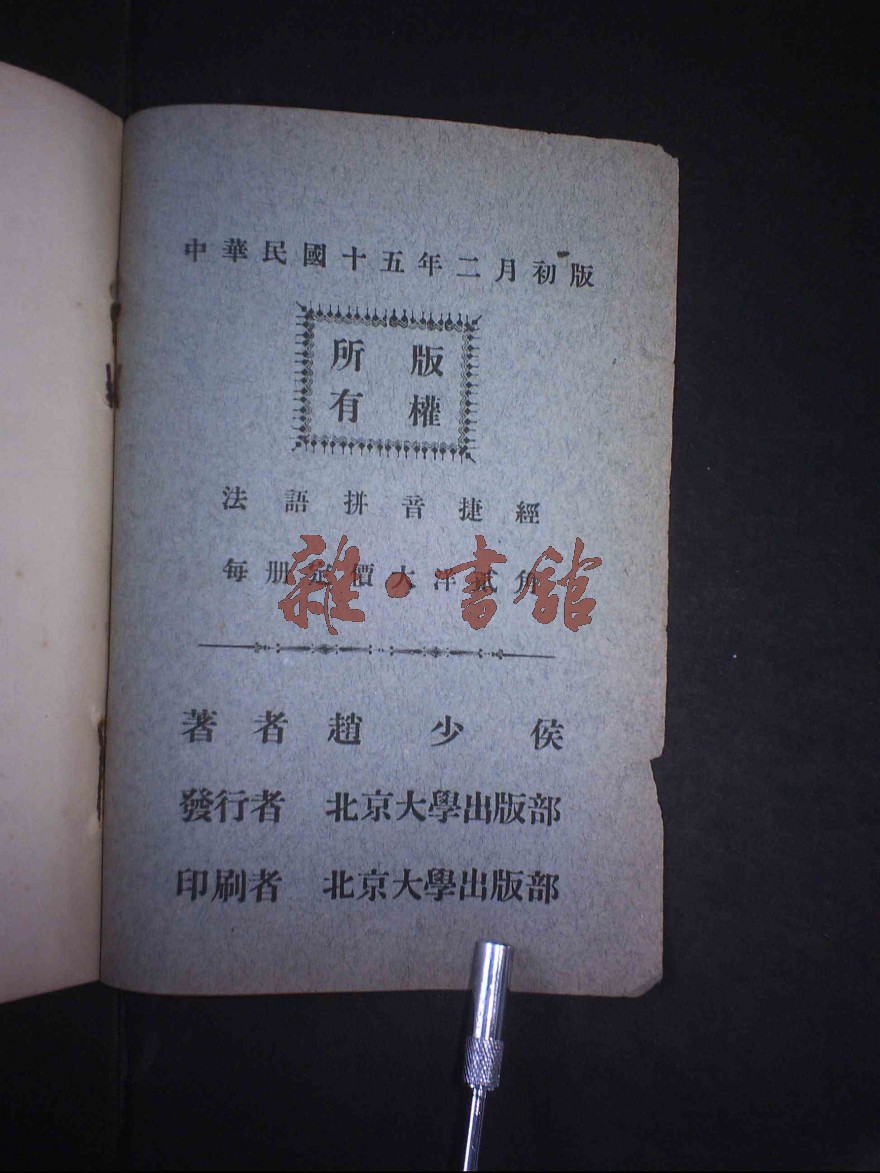 中華民國十五年二月初版
版權
所有
法語拼音捷經
每册定價大洋貳角
雜·書館
著者 趙少侯
發行者 北京大學出版部
印刷者 北京大學出版部